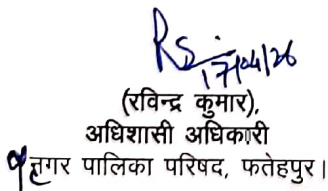 17/04/26
(रविन्द्र कुमार),
अधिशासी अधिकारी
नगर पालिका परिषद, फतेहपुर।